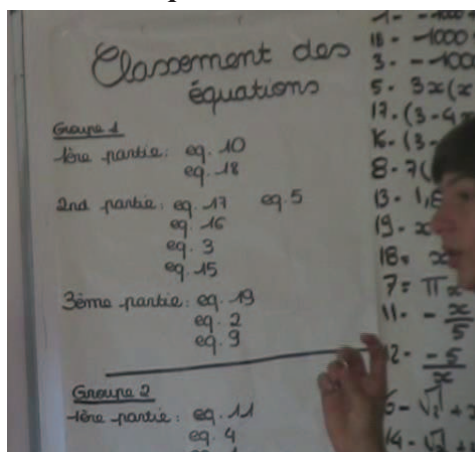 Classement des
équations
Groupe 1
1ère partie: eq. 10
eq. 18
2nd partie: eq. 17 eq. 5
eq. 16
eq. 3
eq. 15
3ème partie: eq. 19
eq. 2
eq. 9
Groupe 2
1ère partie: eq. 11
eq. 4
18 - -1000
3 - -100
5 - 3x(x
17 - (3-4x
16 - (3-
8 - 7(
13 - 1,8
19 - x
18 = x
7 = πx
11 - - x/5
12 - -5/x